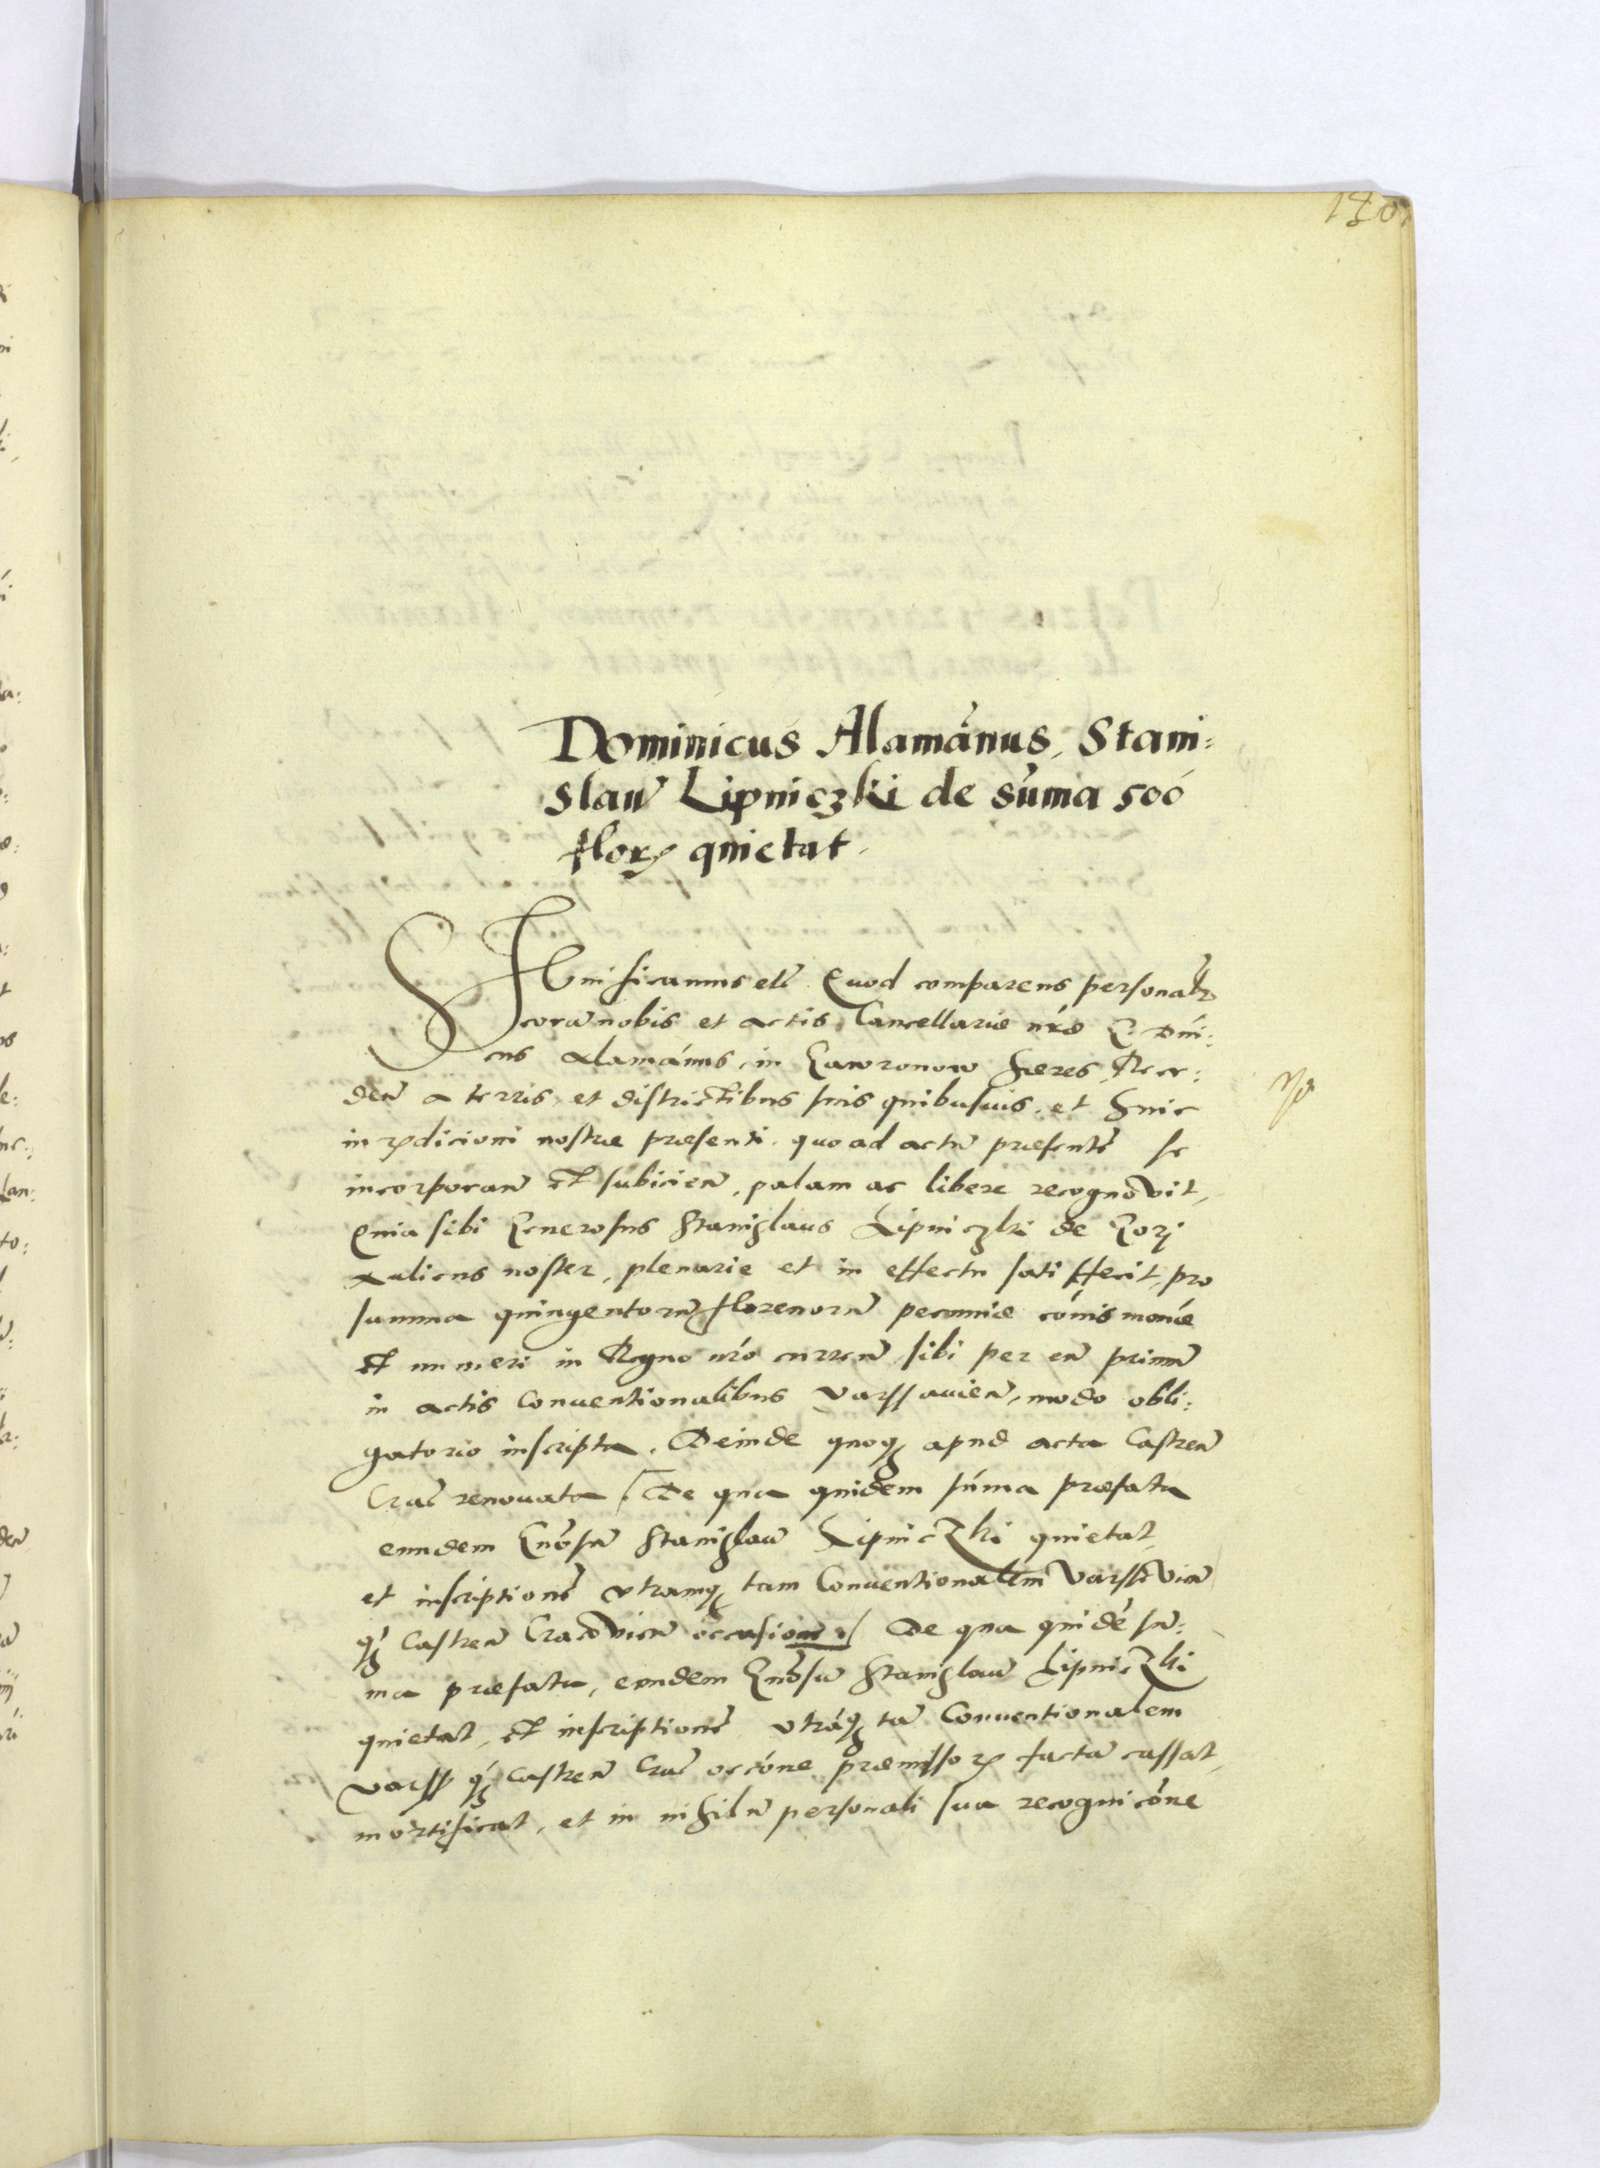 180
Dominicus Alamānus, Stani:
slaū Lipniczki de sūma 500
florꝝ quietat.
Significamus etc̄ Quod comparens personalr̄
corā nobis et actis Cancellariæ nr̄æ G. Dn̄i:
cus Alamānus, in Gawronow hæres, Rece:
den̄ a terris et districtibus suis quibusuis, et huic
iurꝭdicioni nostræ præsenti, quo ad actū præsentē se
incorporan̄ et subicien̄, palam ac libere recognovit,
Quia sibi Generosus Stanislaus Lipniczki de Gorj
Aulicus noster, plenarie et in effectu satisffecit, pro
summa quingentorū florenorū pecuniæ cōmis monē
et numeri in Regno nr̄o curren̄ sibi per eū primū
in actis Conventionalibus varssavien̄, modo obli:
gatorio inscripta. Deinde quoqꝫ apud acta Castren̄
Crac̄ renovata. De qua quidem sūma præfata
eundem Gn̄osū Stanislaū Lipniczki quietat,
et inscriptionē vtramqꝫ tam Conventionalem varssovien̄
qꝫ Castren̄ Cracovien̄ occasione De qua quidē sū:
ma præfata, eundem Gn̄osū Stanislaū Lipniczki
quietat, et inscriptionē vtrāqꝫ tā Conventionalem
varss qꝫ Castren̄ Crac̄ occōne præmissorꝝ factā cassat,
mortificat, et in nihilū personali sua recognicōne